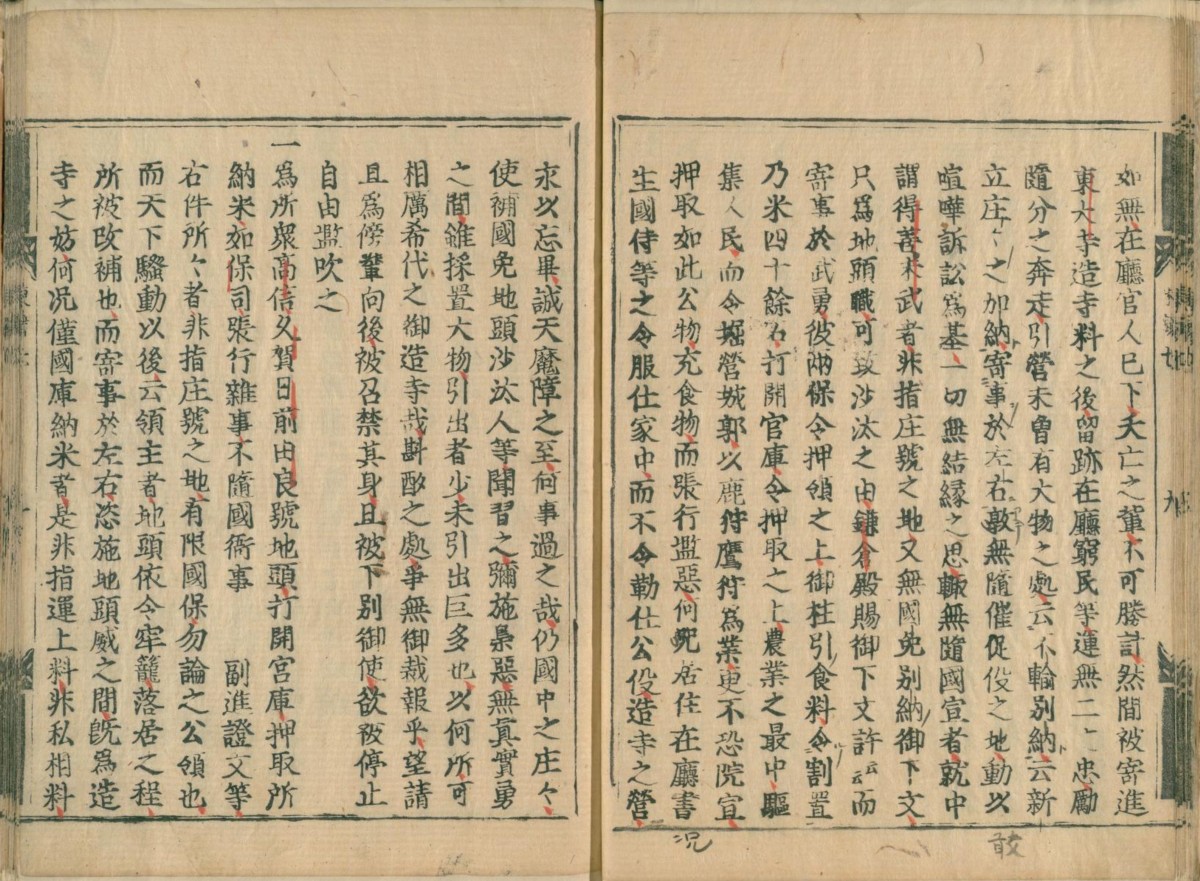 如無在廳官人已下夭亡之輩不可勝計然間被寄進
東大寺造寺料之後留跡在廳窮民等連無二々忠勵
隨分之奔走引營未曽有大物之處云不輸別納云新
立庄々之加納寄事於左右敦無隨催促役之地動以
喧嘩訴訟爲基一切無結縁之思輙無隨國宣者就中
謂得善末武者非指庄號之地又無國免別納御下文
只爲地頭職可致沙汰之由鎌倉殿賜御下文許云云而
寄事於武勇彼兩保令押領之上御柱引食料令割置
乃米四十餘石打開官庫令押取之上農業之最中驅
集人民而令堀營城郭以鹿狩鷹狩爲業更不恐院宣
押取如此公物充食物而張行濫惡何况居住在廳書
生國侍等之令服仕家中而不令勤仕公役造寺之營
求以忘畢誠天魔障之至何事過之哉仍國中之庄々
使補國免地頭沙汰人等聞習之彌施梟惡無眞實勇
之間雖採置大物引出者少未引出巨多也以何所可
相厲希代之御造寺哉斟酌之處爭無御裁報乎望請
且爲傍輩向後被召禁其身且被下別御使欲被停止
自由濫吹之
一爲所衆高信久賀日前由良號地頭打開官庫押取所
納米如保司張行雜事不隨國衙事 副進證文等
右件所々者非指庄號之地有限國保勿論之公領也
而天下騷動以後云領主者地頭依令牢籠落居之程
所被改補也而寄事於左右恣施地頭威之間旣爲造
寺之妨何况僅國庫納米者是非指運上料非私相料
敢
况